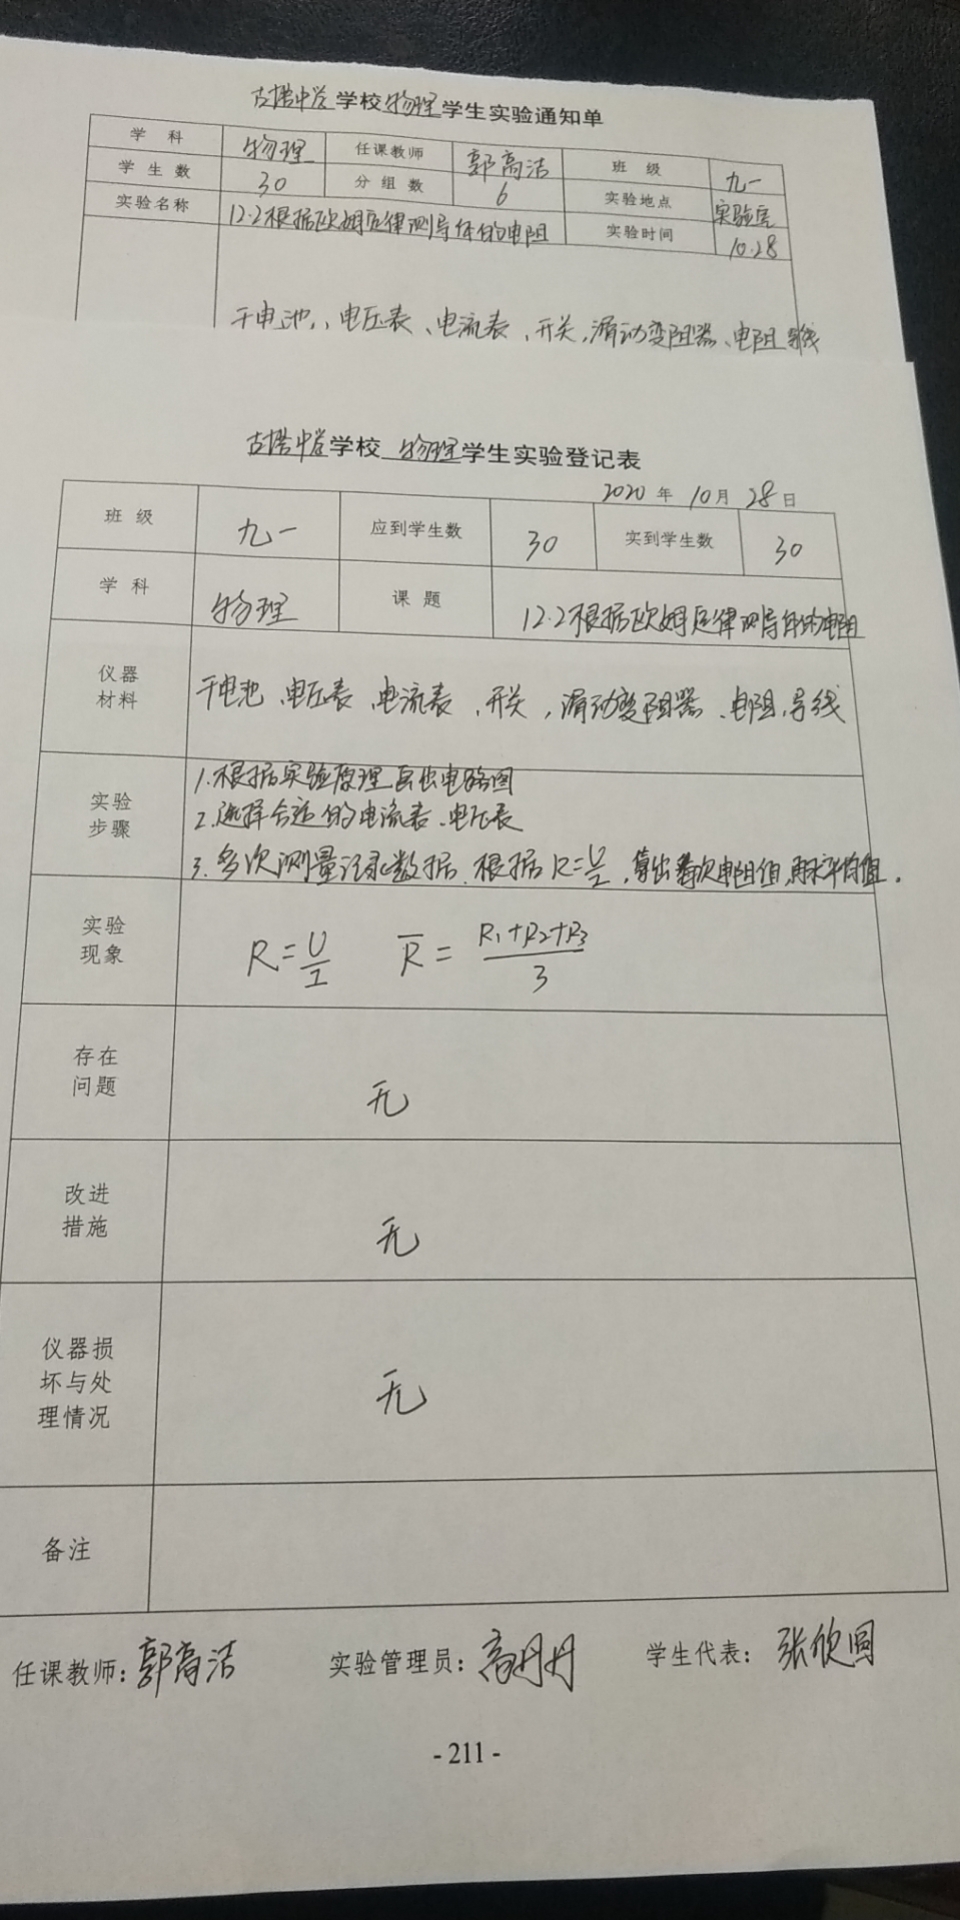 古塔中学学校物理学生实验通知单
学科 物理 任课教师 郭高洁 班级 九一
学生数 30 分组数 6 实验地点 实验室
实验名称 12.2根据欧姆定律测导体的电阻 实验时间 10.28
干电池、电压表、电流表、开关,滑动变阻器、电阻 导线
古塔中学学校 物理学生实验登记表
2020年10月28日
班级 九一 应到学生数 30 实到学生数 30
学科 物理 课题 12.2根据欧姆定律测导体的电阻
仪器材料 干电池、电压表、电流表、开关,滑动变阻器、电阻,导线
实验步骤 1.根据实验原理画出电路图
2.选择合适的电流表、电压表
3.多次测量记录数据,根据R=U/I,算出每次电阻值,再求平均值.
实验现象 R=U/I R̅=(R1+R2+R3)/3
存在问题 无
改进措施 无
仪器损坏与处理情况 无
备注
任课教师:郭高洁 实验管理员:高丹丹 学生代表:张欣
- 211 -